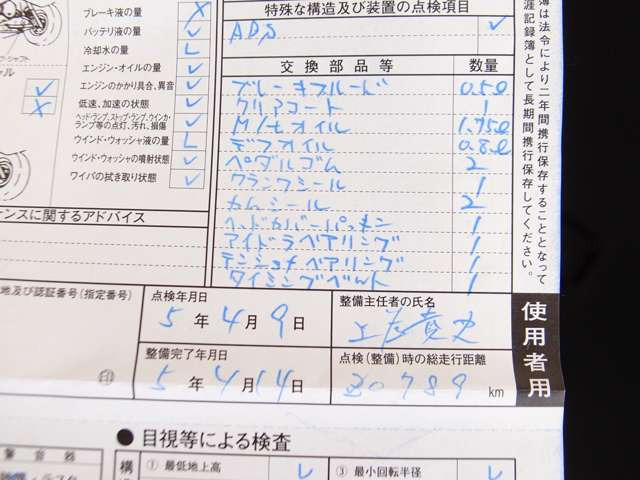 ブレーキ液の量
バッテリ液の量
冷却水の量 L
エンジン・オイルの量
エンジンのかかり具合、異音
低速、加速の状態
ヘッド・ランプ、ストップ・ランプ、ウインカ・
ランプ等の点灯、汚れ、損傷
ウインド・ウォッシャ液の量 L
ウインド・ウォッシャの噴射状態
ワイパの拭き取り状態
ナンスに関するアドバイス
特殊な構造及び装置の点検項目
交換部品等 数量
ブレーキフルード 0.5ℓ
クリアコート 1
M/tオイル 1.75ℓ
デフオイル 0.8ℓ
ペダルゴム 2
クランクシール 1
カムシール 2
ヘッドカバーパッキン 1
アイドラベアリング 1
テンショナベアリング 1
タイミングベルト 1
地及び認証番号(指定番号)
印
点検年月日
5年4月9日
整備主任者の氏名
整備完了年月日
5年4月14日
点検(整備)時の総走行距離
30789 km
簿は法令により二年間携行保存することとなって
涯記録簿として長期間携行保存してください。
使用者用
●目視等による検査
警音器
① 最低地上高 レ
③ 最小回転半径 レ